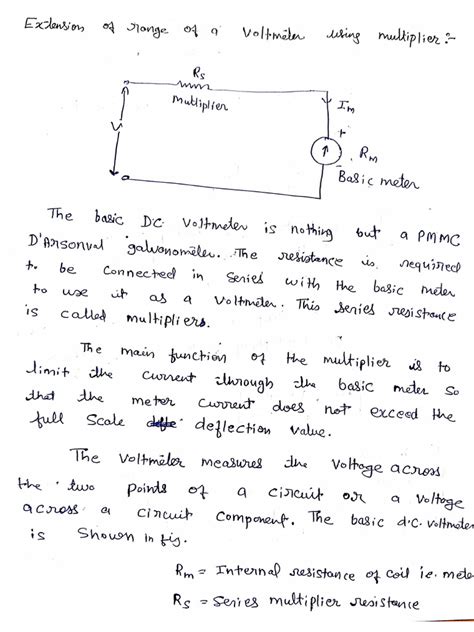 Extension of range of a Voltmeter using multiplier:-
Rs
Multiplier
Im
V
+
Rm
-
Basic meter
The basic D.C. Voltmeter is nothing but a PMMC
D'Arsonval galvanometer. The resistance is required
to be connected in series with the basic meter
to use it as a Voltmeter. This series resistance
is called multipliers.
The main function of the multiplier is to
limit the current through the basic meter so
that the meter current does not exceed the
full scale deflection value.
The voltmeter measures the voltage across
the two points of a circuit or a voltage
across a circuit component. The basic d.c. voltmeter
is shown in fig.
Rm = Internal resistance of coil ie. mete
Rs = Series multiplier resistance